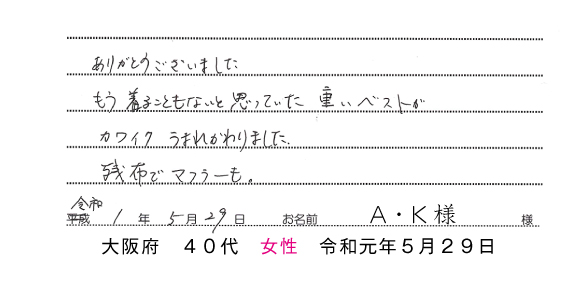 ありがとうございました
もう着ることもないと思っていた 重いベストが
カワイク うまれかわりました.
残布でマフラーも。
令和
平成 1 年 5 月 29 日 お名前 A・K様 様
大阪府 40代 女性 令和元年5月29日